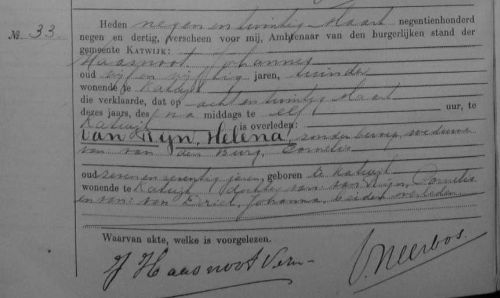 № 33.
Heden negen en twintig Maart negentienhonderd
negen en dertig, verscheen voor mij, Ambtenaar van den burgerlijken stand der
gemeente KATWIJK:
Haasnoot, Johannes
oud vijf en vijftig jaren, tuinder
wonende te Katwijk
die verklaarde, dat op acht en twintig Maart
dezes jaars, des na middags te elf uur, te
Katwijk is overleden:
van Rijn, Helena, zonder beroep, weduwe
van van den Burg, Cornelis
oud zeven en zeventig jaren, geboren te Katwijk
wonende te Katwijk, dochter van van Rijn, Cornelis
en van: van Johanna, beiden overleden
Waarvan akte, welke is voorgelezen.
J Haasnoot Neerbos.